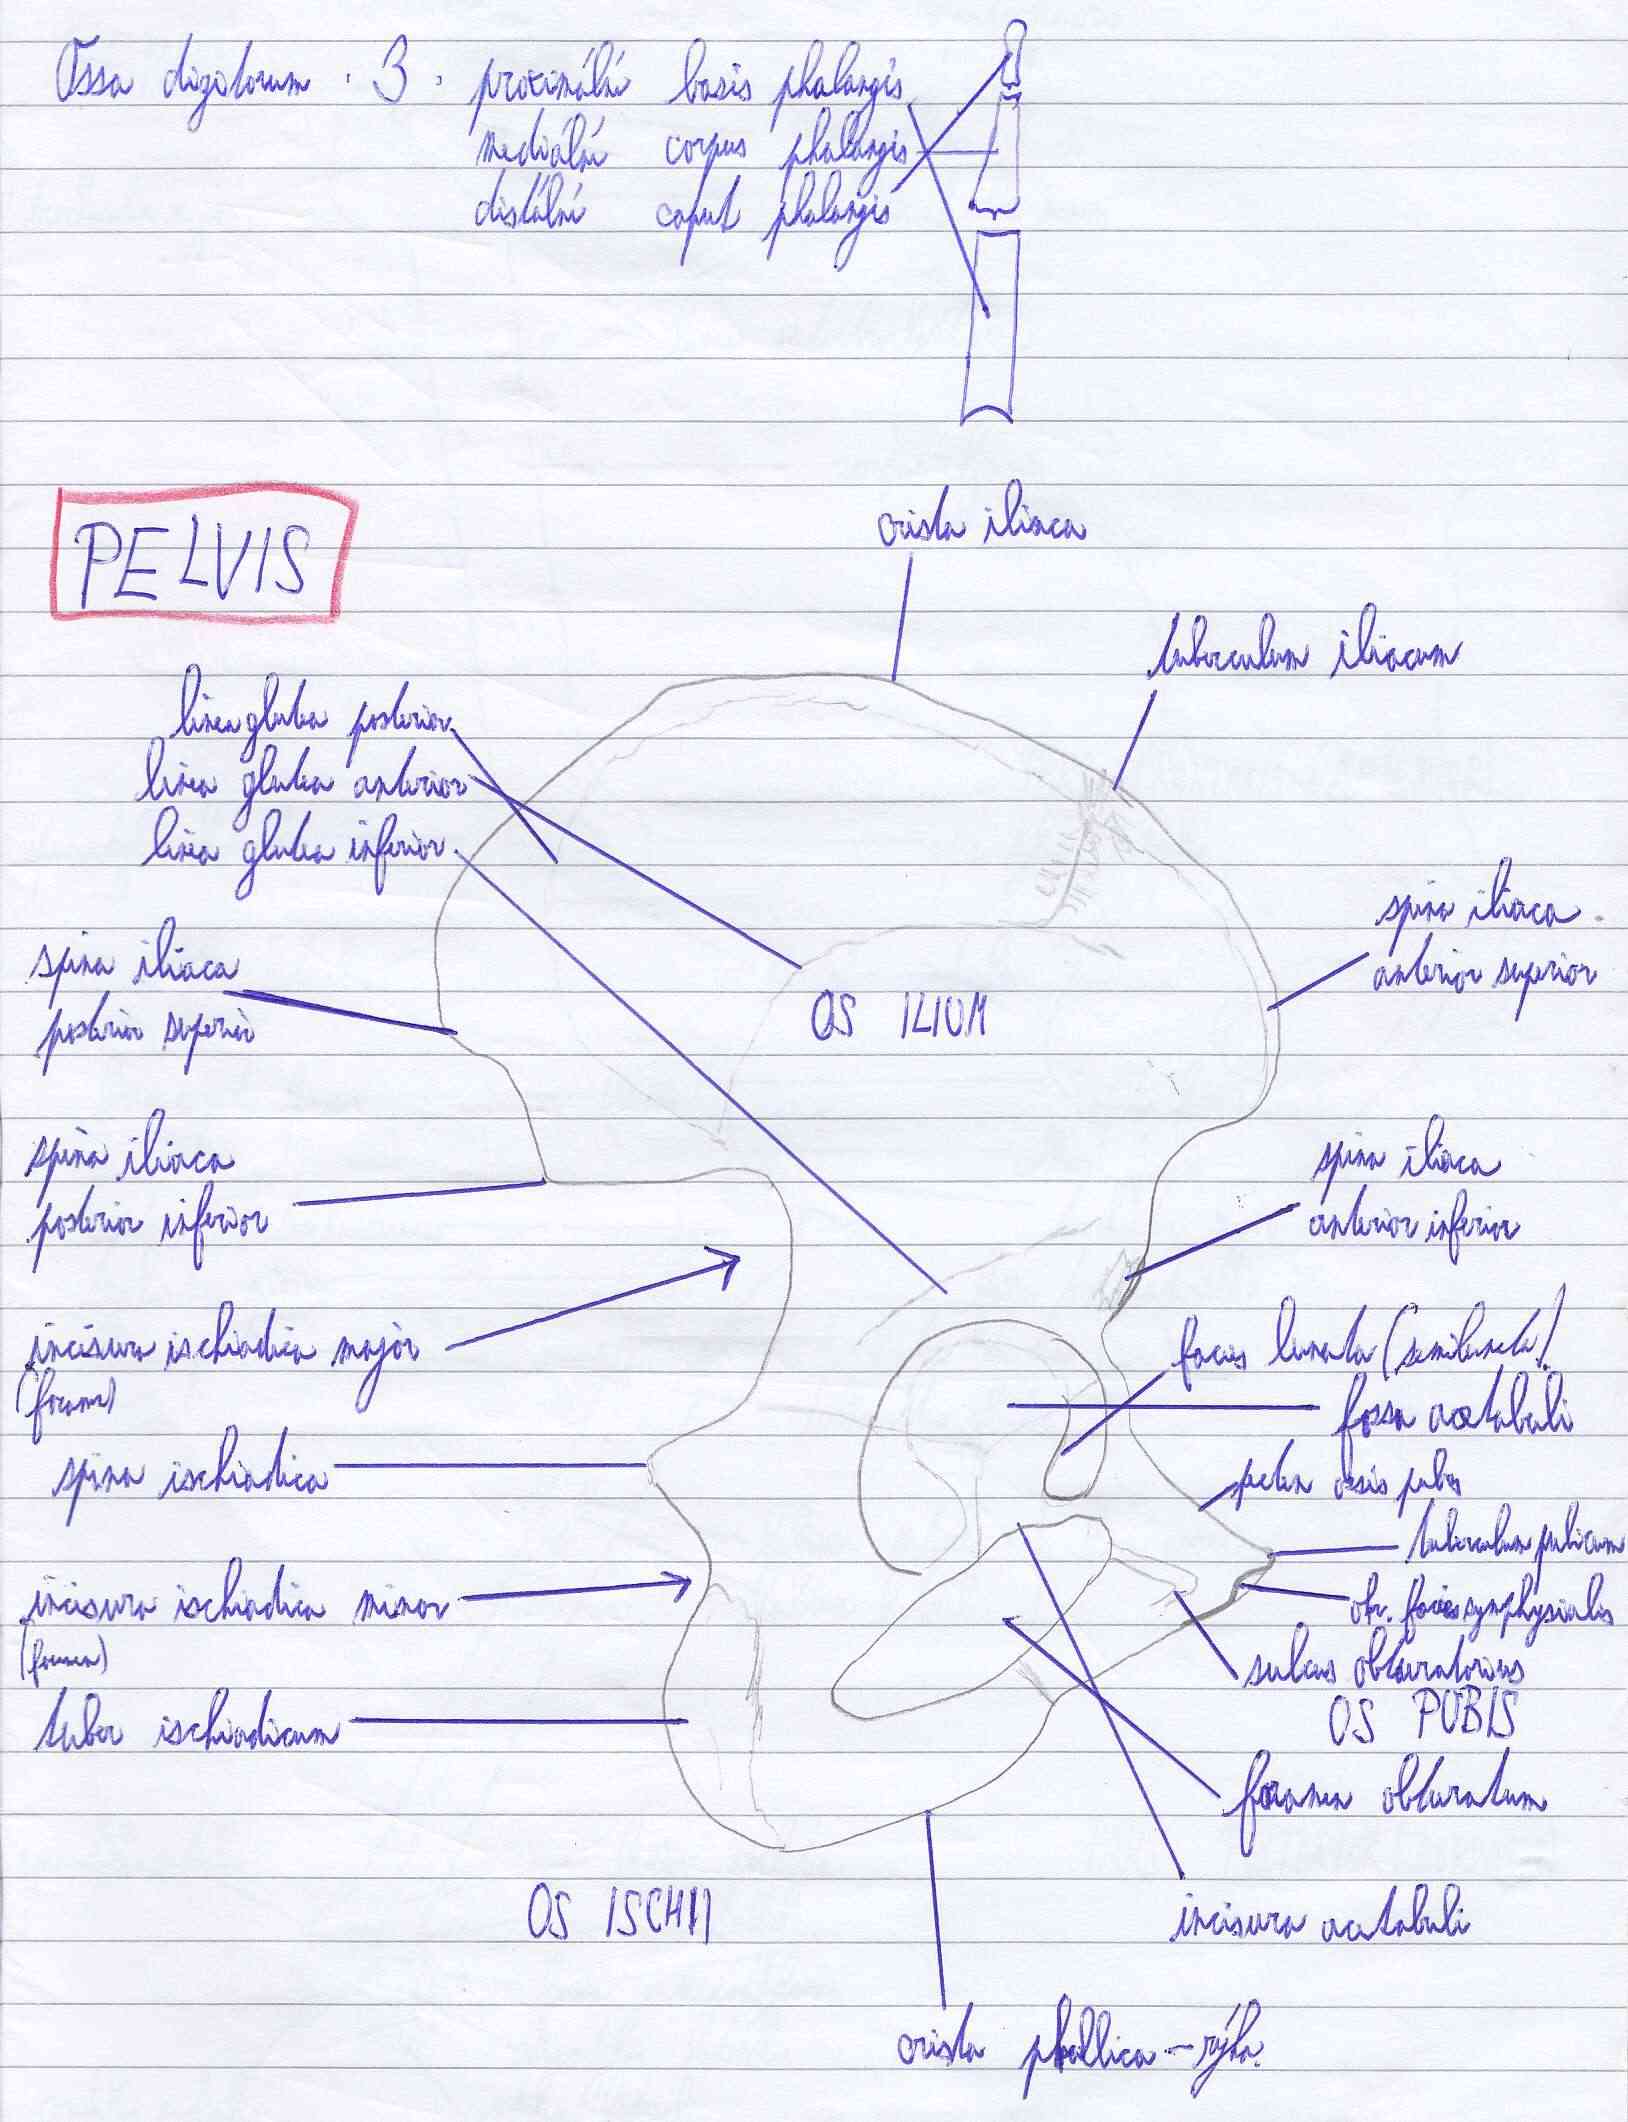 Ossa digitorum · 3 · proximální basis phalangis
mediální corpus phalangis
distální caput phalangis
PELVIS
crista iliaca
tuberculum iliacum
linea glutea posterior
linea glutea anterior
linea glutea inferior
spina iliaca
anterior superior
spina iliaca
posterior superior
OS ILIUM
spina iliaca
posterior inferior
spina iliaca
anterior inferior
incisura ischiadica major
(foramen)
facies lunata (semilunata)
fossa acetabuli
spina ischiadica
pecten ossis pubis
tuberculum pubicum
incisura ischiadica minor
(foramen)
facies symphysialis
sulcus obturatorius
OS PUBIS
tuber ischiadicum
foramen obturatum
OS ISCHII
incisura acetabuli
crista phallica – rýha